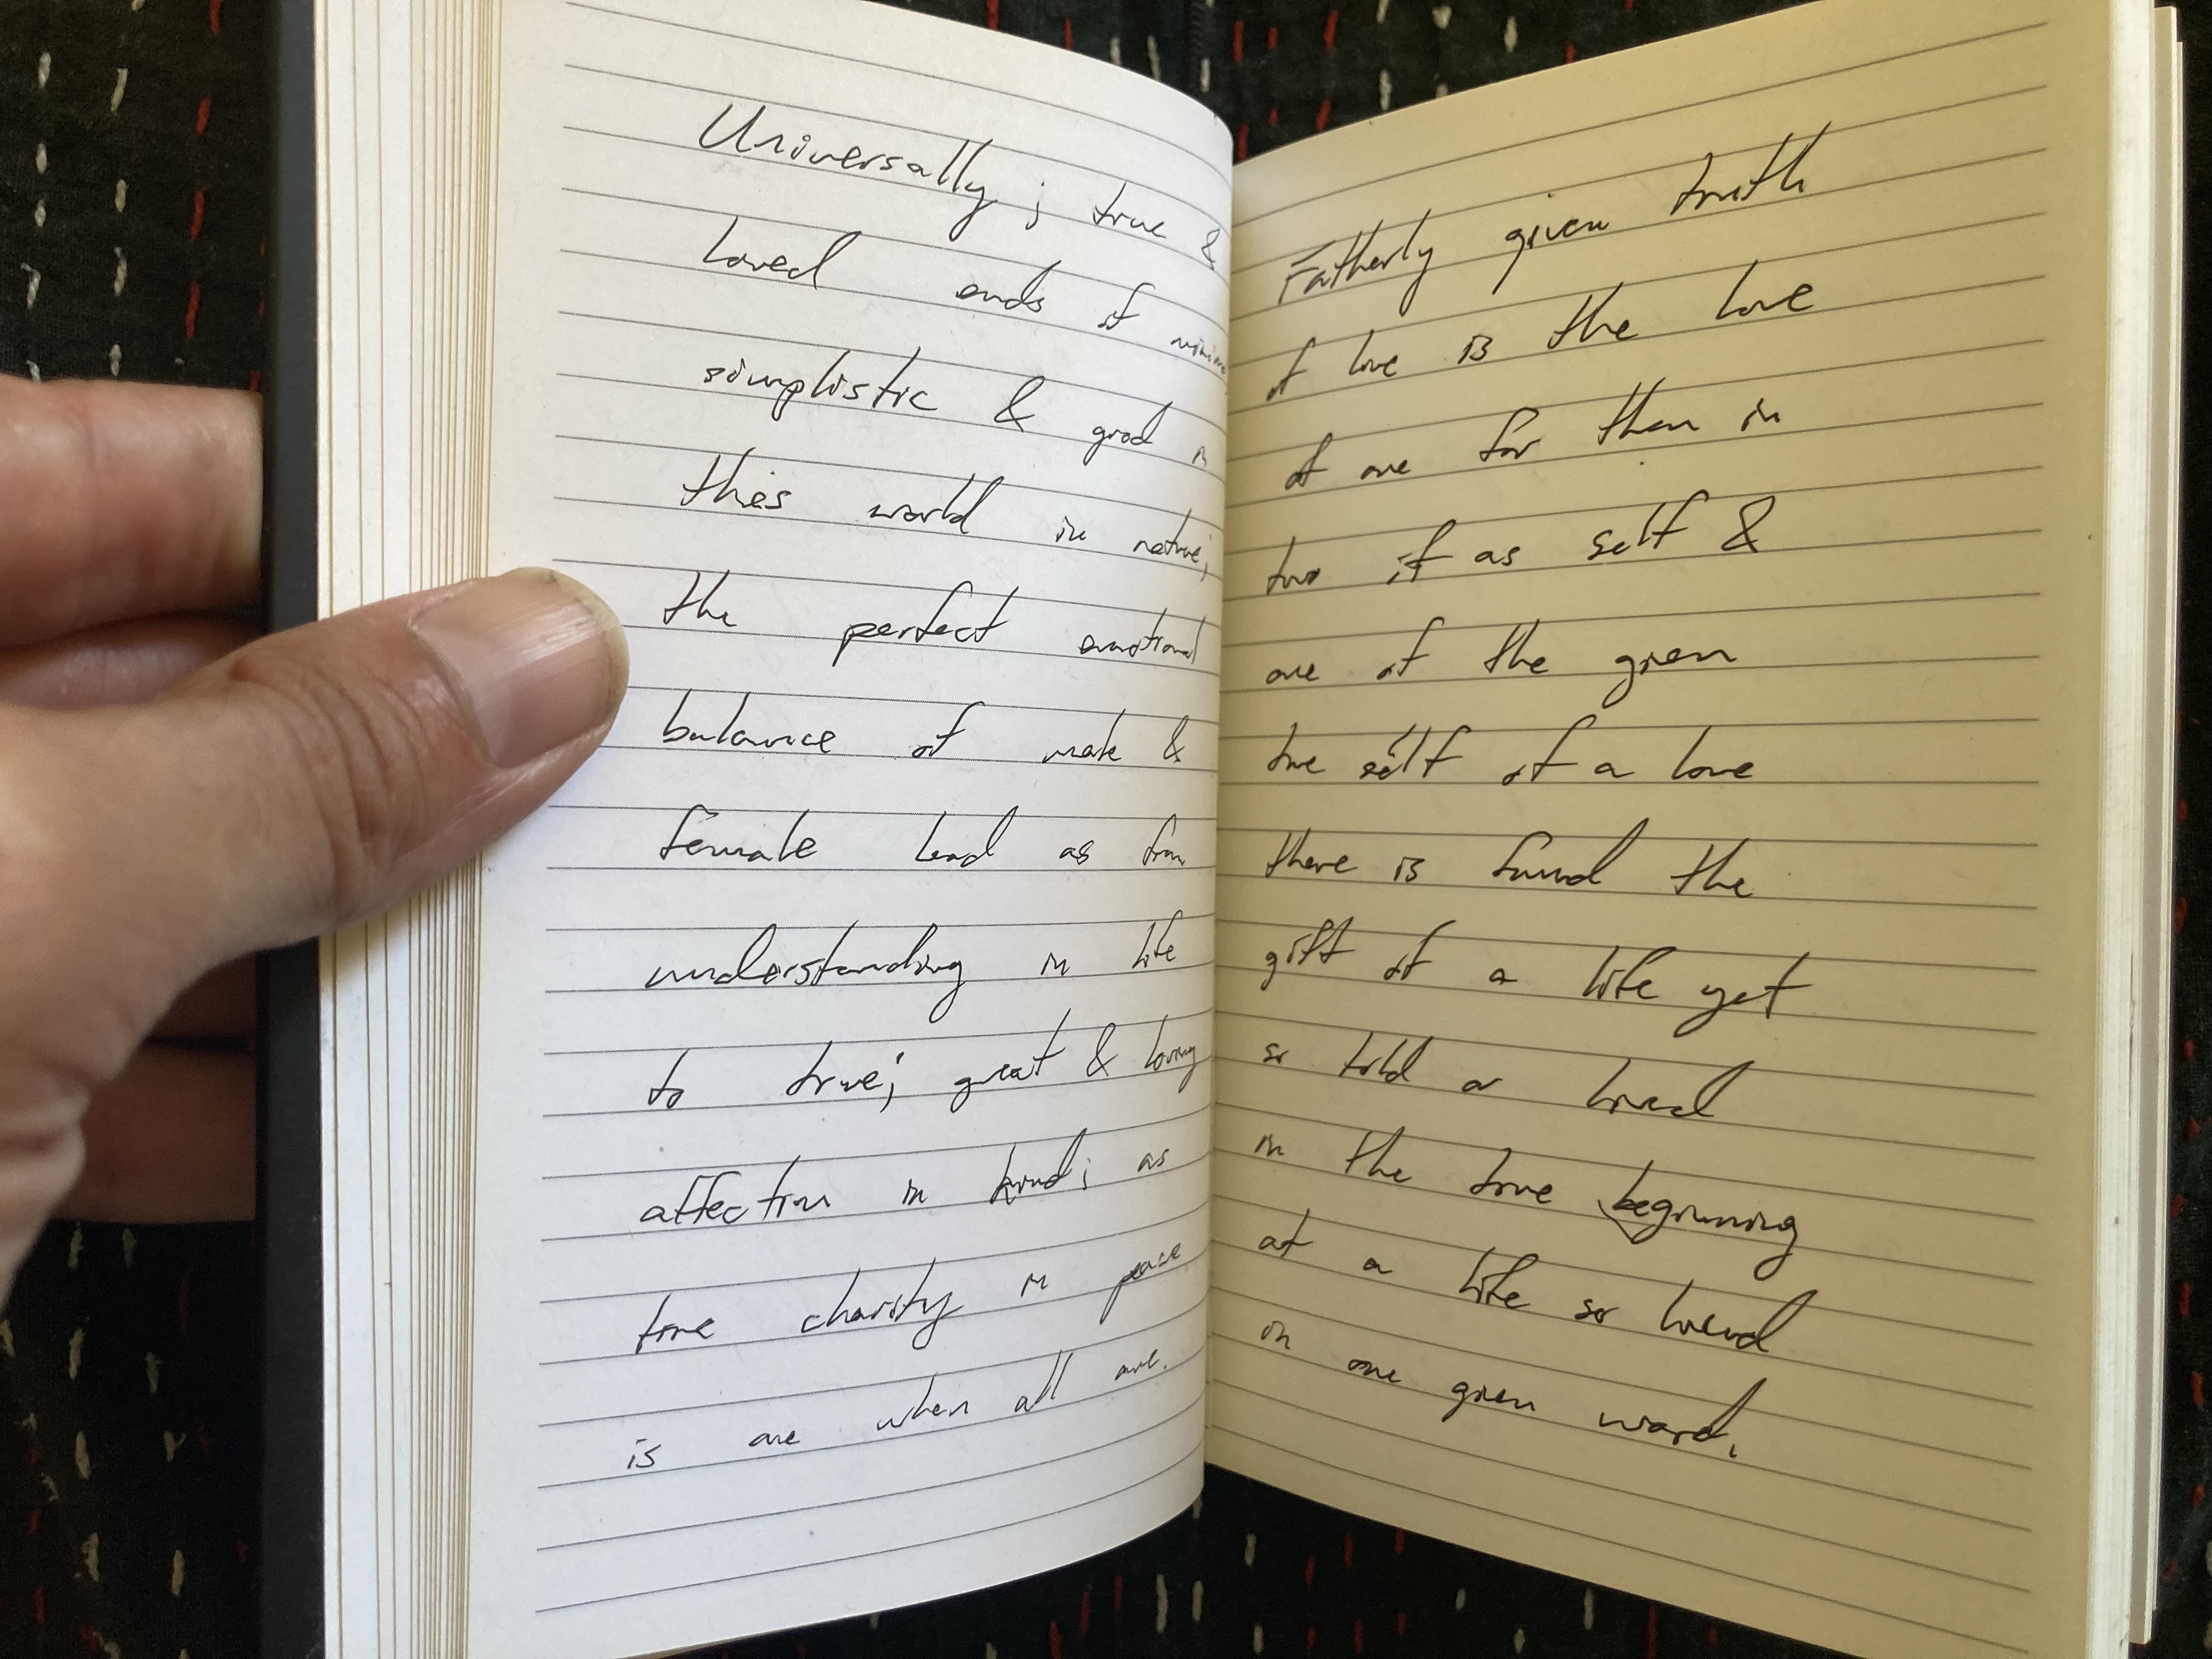 Universally; true &
loved ends of
simplistic & good in
this world in nature;
the perfect emotional
balance of male &
female lead as from
understanding in life
to true; great & loving
affection in kind; as
true charity in peace
is one when all are.
Fatherly given truth
of love is the love
of one for them in
two if as self &
one of the given
true self of a love
there is found the
gift of a life yet
so told or loved
in the true beginning
at a life so loved
in one given word.